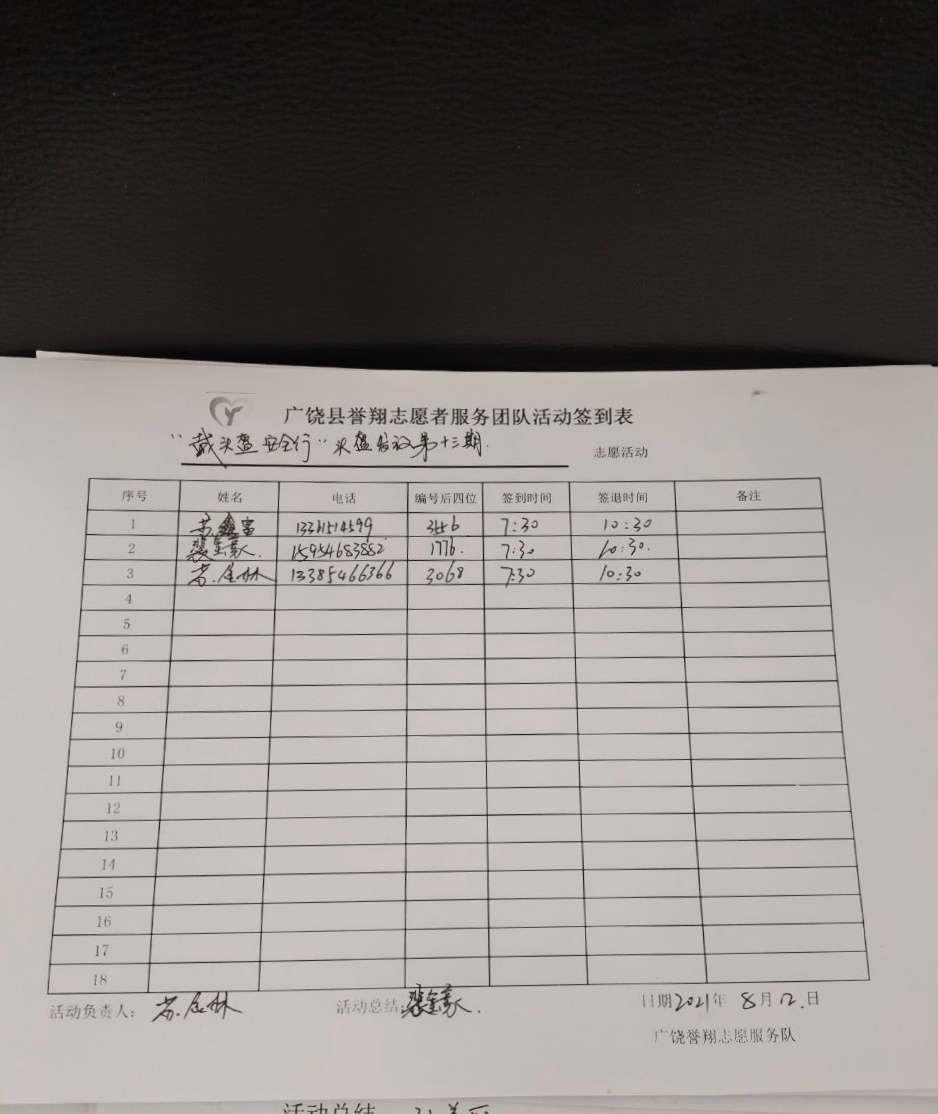 广饶县誉翔志愿者服务团队活动签到表
"戴头盔 安全行" 头盔发放第十三期.
志愿活动
序号 姓名 电话 编号后四位 签到时间 签退时间 备注
1 苏鑫富 7:30 10:30
2 15954683882 1776. 7:30 10:30.
3 13385466366 3068 7:30 10:30
4
5
6
7
8
9
10
11
12
13
14
15
16
17
18
活动负责人: 活动总结 日期2021年 8月12.日
广饶誉翔志愿服务队
活动总结